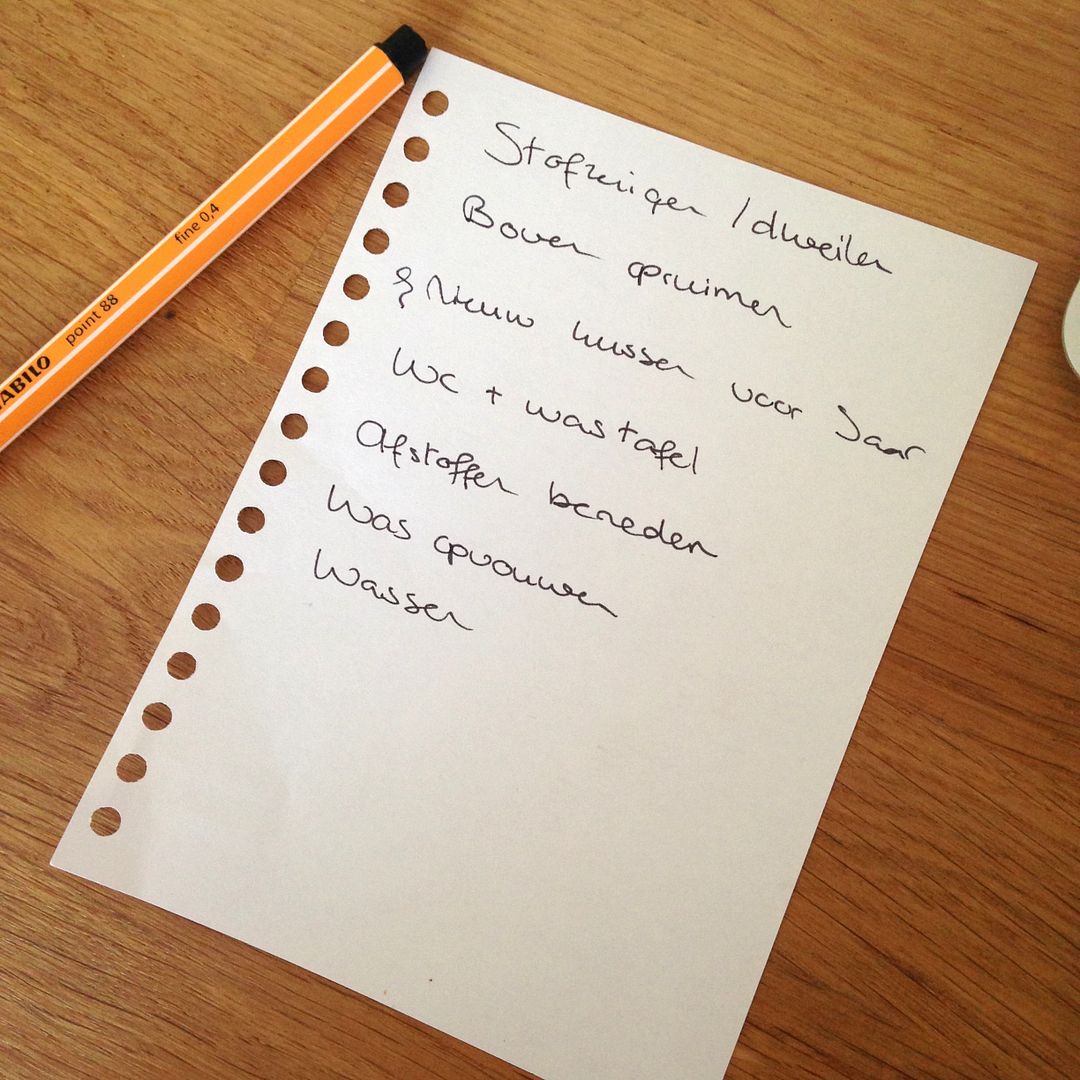 Stofzuigen / dweilen
Boven opruimen
& Nieuw kussen voor Jaar
WC + wastafel
Afstoffen beneden
Was opvouwen
Wassen
ABILO point 88 fine 0,4